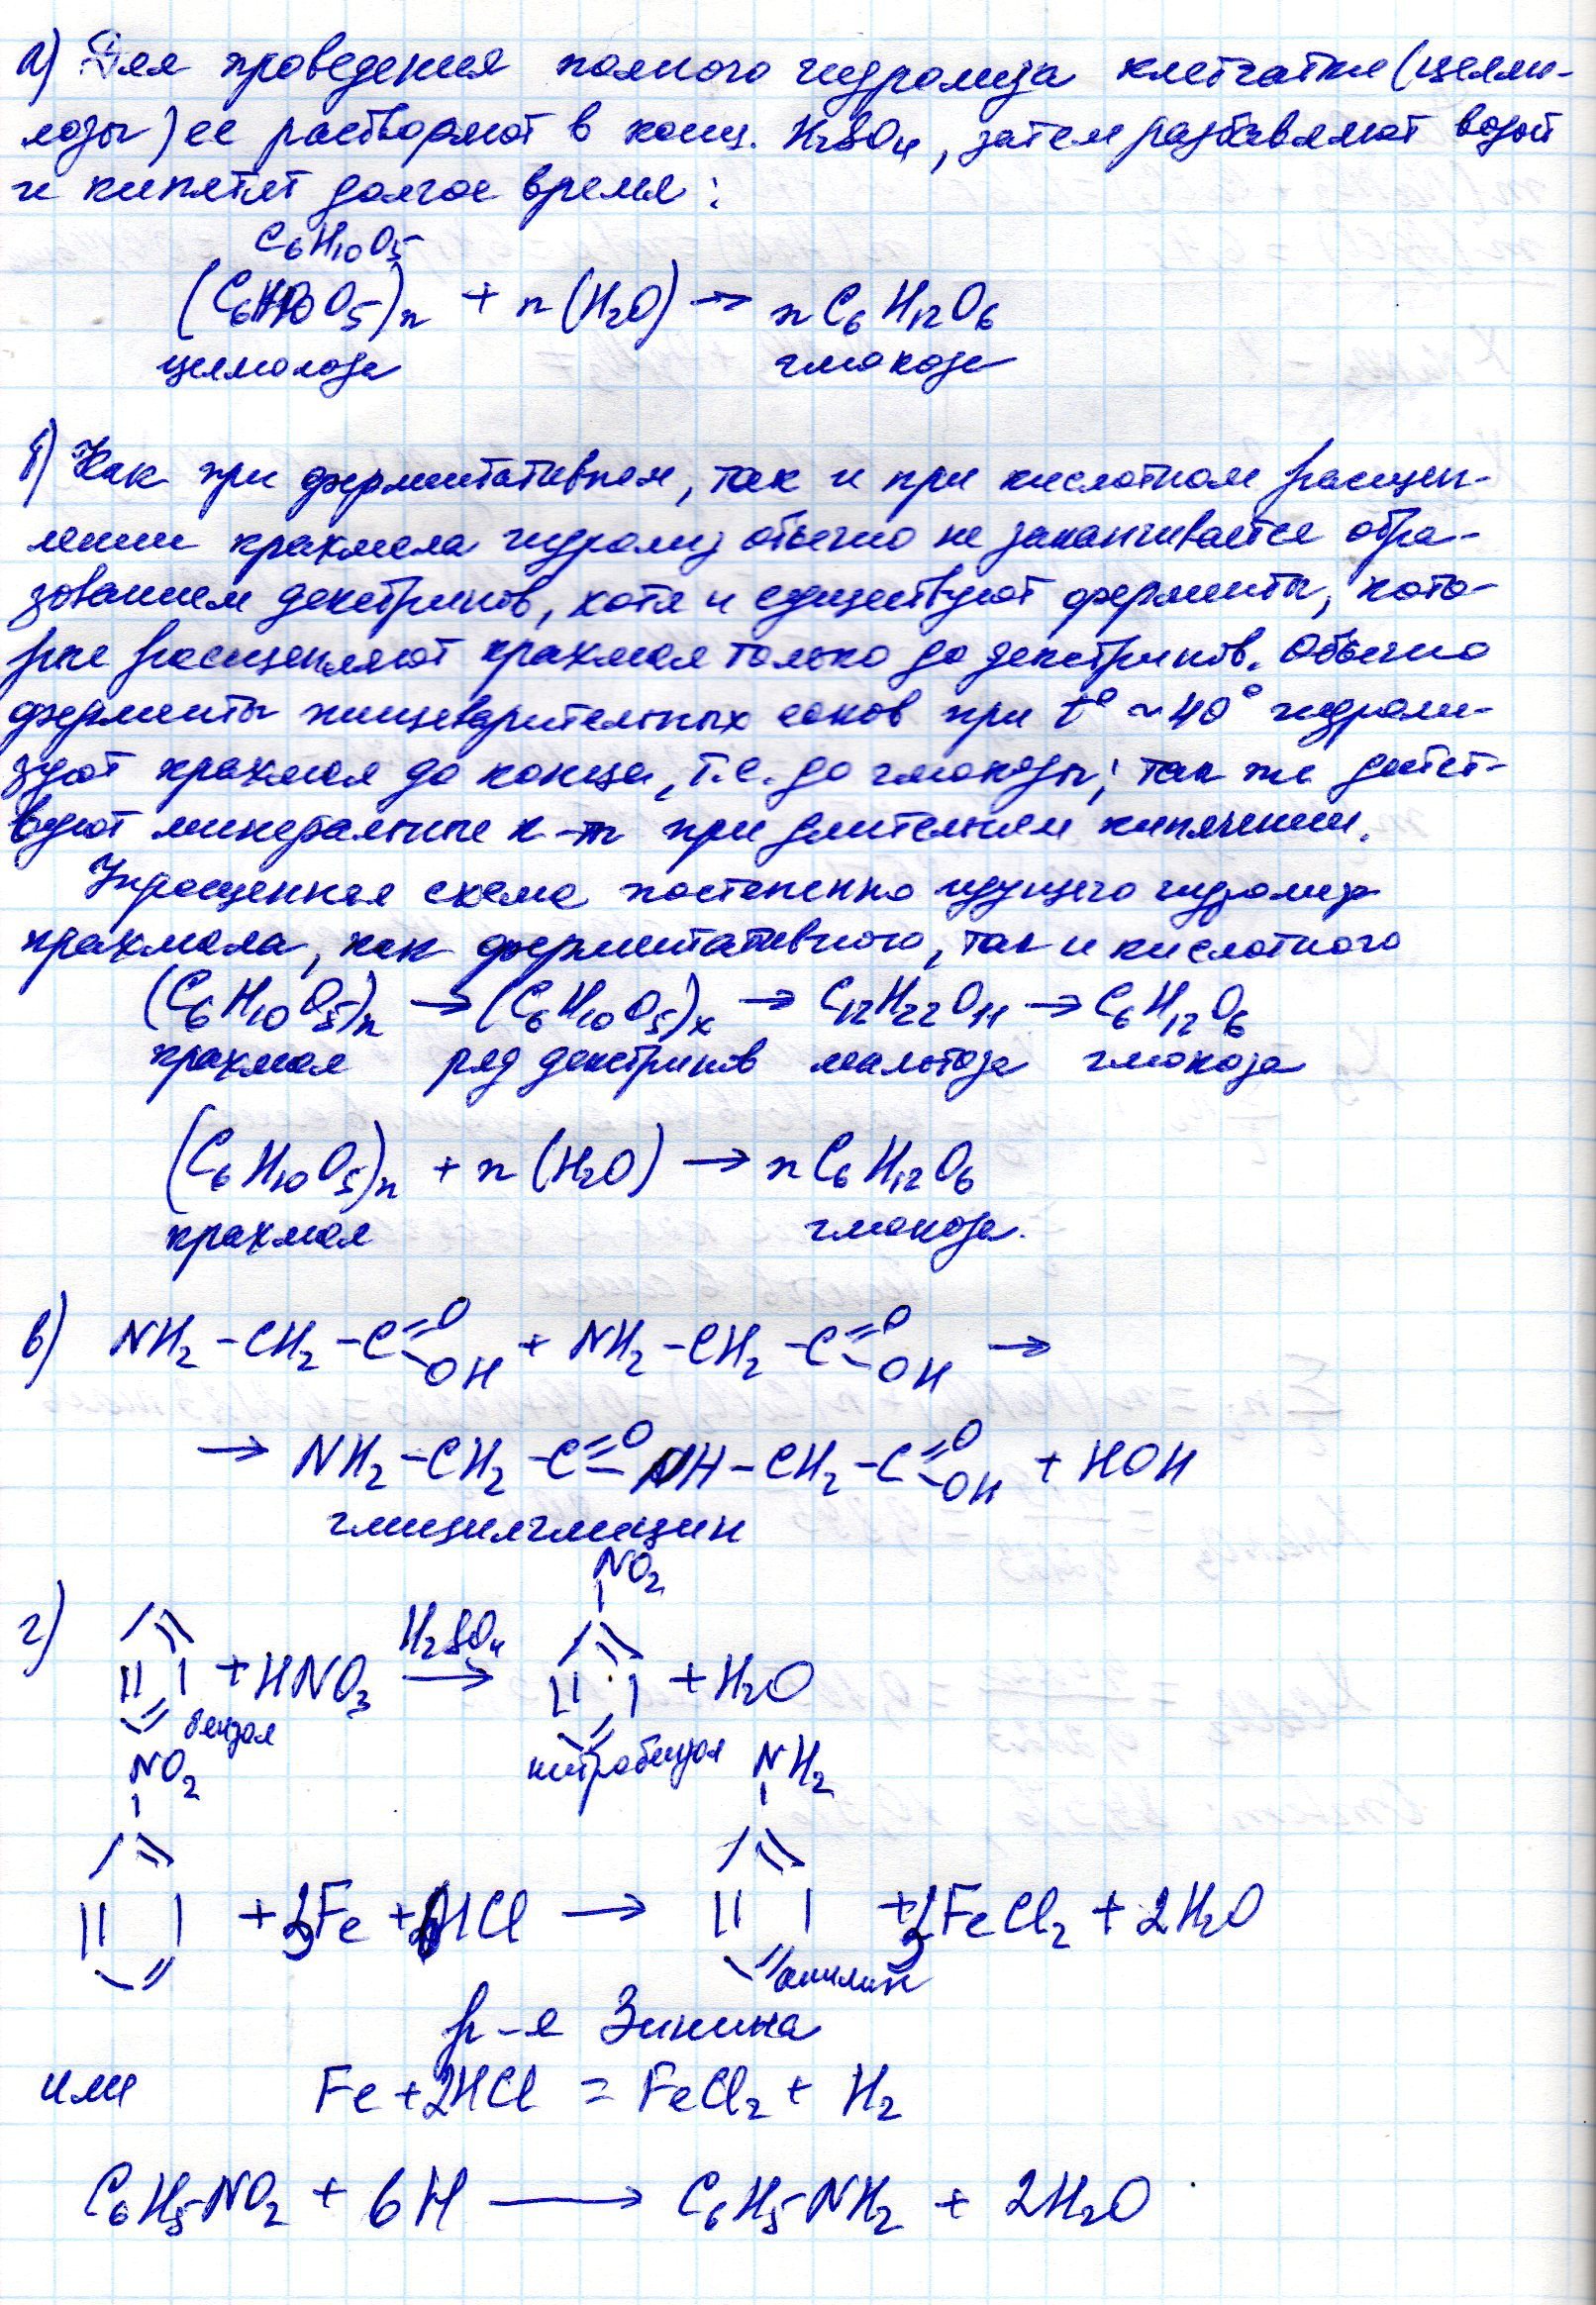 а) Для проведения полного гидролиза клетчатки (целлю-
лозы) ее растворяют в конц. H₂SO₄, затем разбавляют водой
и кипятят долгое время:
C₆H₁₀O₅
(C₆H₁₀O₅)ₙ + n(H₂O) → nC₆H₁₂O₆
целлюлоза глюкоза
б) Как при ферментативном, так и при кислотном расщеп-
лении крахмала гидролиз обычно не заканчивается обра-
зованием декстринов, хотя и существуют ферменты, кото-
рые расщепляют крахмал только до декстринов. Обычно
ферменты пищеварительных соков при t° ~ 40° гидроли-
зуют крахмал до конца, т.е. до глюкозы; так же дейст-
вуют минеральные к-ты при длительном кипячении.
Упрощенная схема постепенно идущего гидролиза
крахмала, как ферментативного, так и кислотного
(C₆H₁₀O₅)ₙ → (C₆H₁₀O₅)ₓ → C₁₂H₂₂O₁₁ → C₆H₁₂O₆
крахмал ряд декстринов мальтоза глюкоза
(C₆H₁₀O₅)ₙ + n(H₂O) → nC₆H₁₂O₆
крахмал глюкоза.
в) NH₂-CH₂-C=O-OH + NH₂-CH₂-C=O-OH →
→ NH₂-CH₂-C=O-NH-CH₂-C=O-OH + HOH
глицилглицин
NO₂
г) + HNO₃ H₂SO₄ → + H₂O
бензол нитробензол
NO₂ NH₂
+ 3Fe + 6HCl → + 3FeCl₂ + 2H₂O
анилин
р-я Зинина
или Fe + 2HCl = FeCl₂ + H₂
C₆H₅NO₂ + 6H → C₆H₅NH₂ + 2H₂O